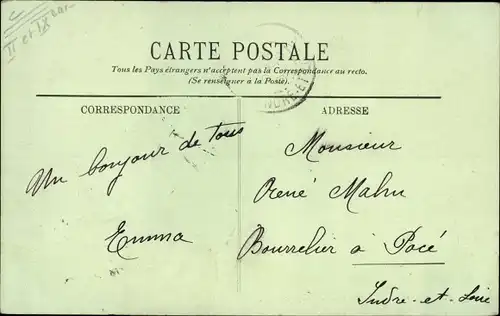 II et IX
CARTE POSTALE
Tous les Pays étrangers n'acceptent pas la Correspondance au recto.
(Se renseigner à la Poste).
INDRE-ET-
CORRESPONDANCE
Un bonjour de tous
Emma
ADRESSE
Monsieur
René Mahu
Bourrelier à Pocé
Indre-et-Loire